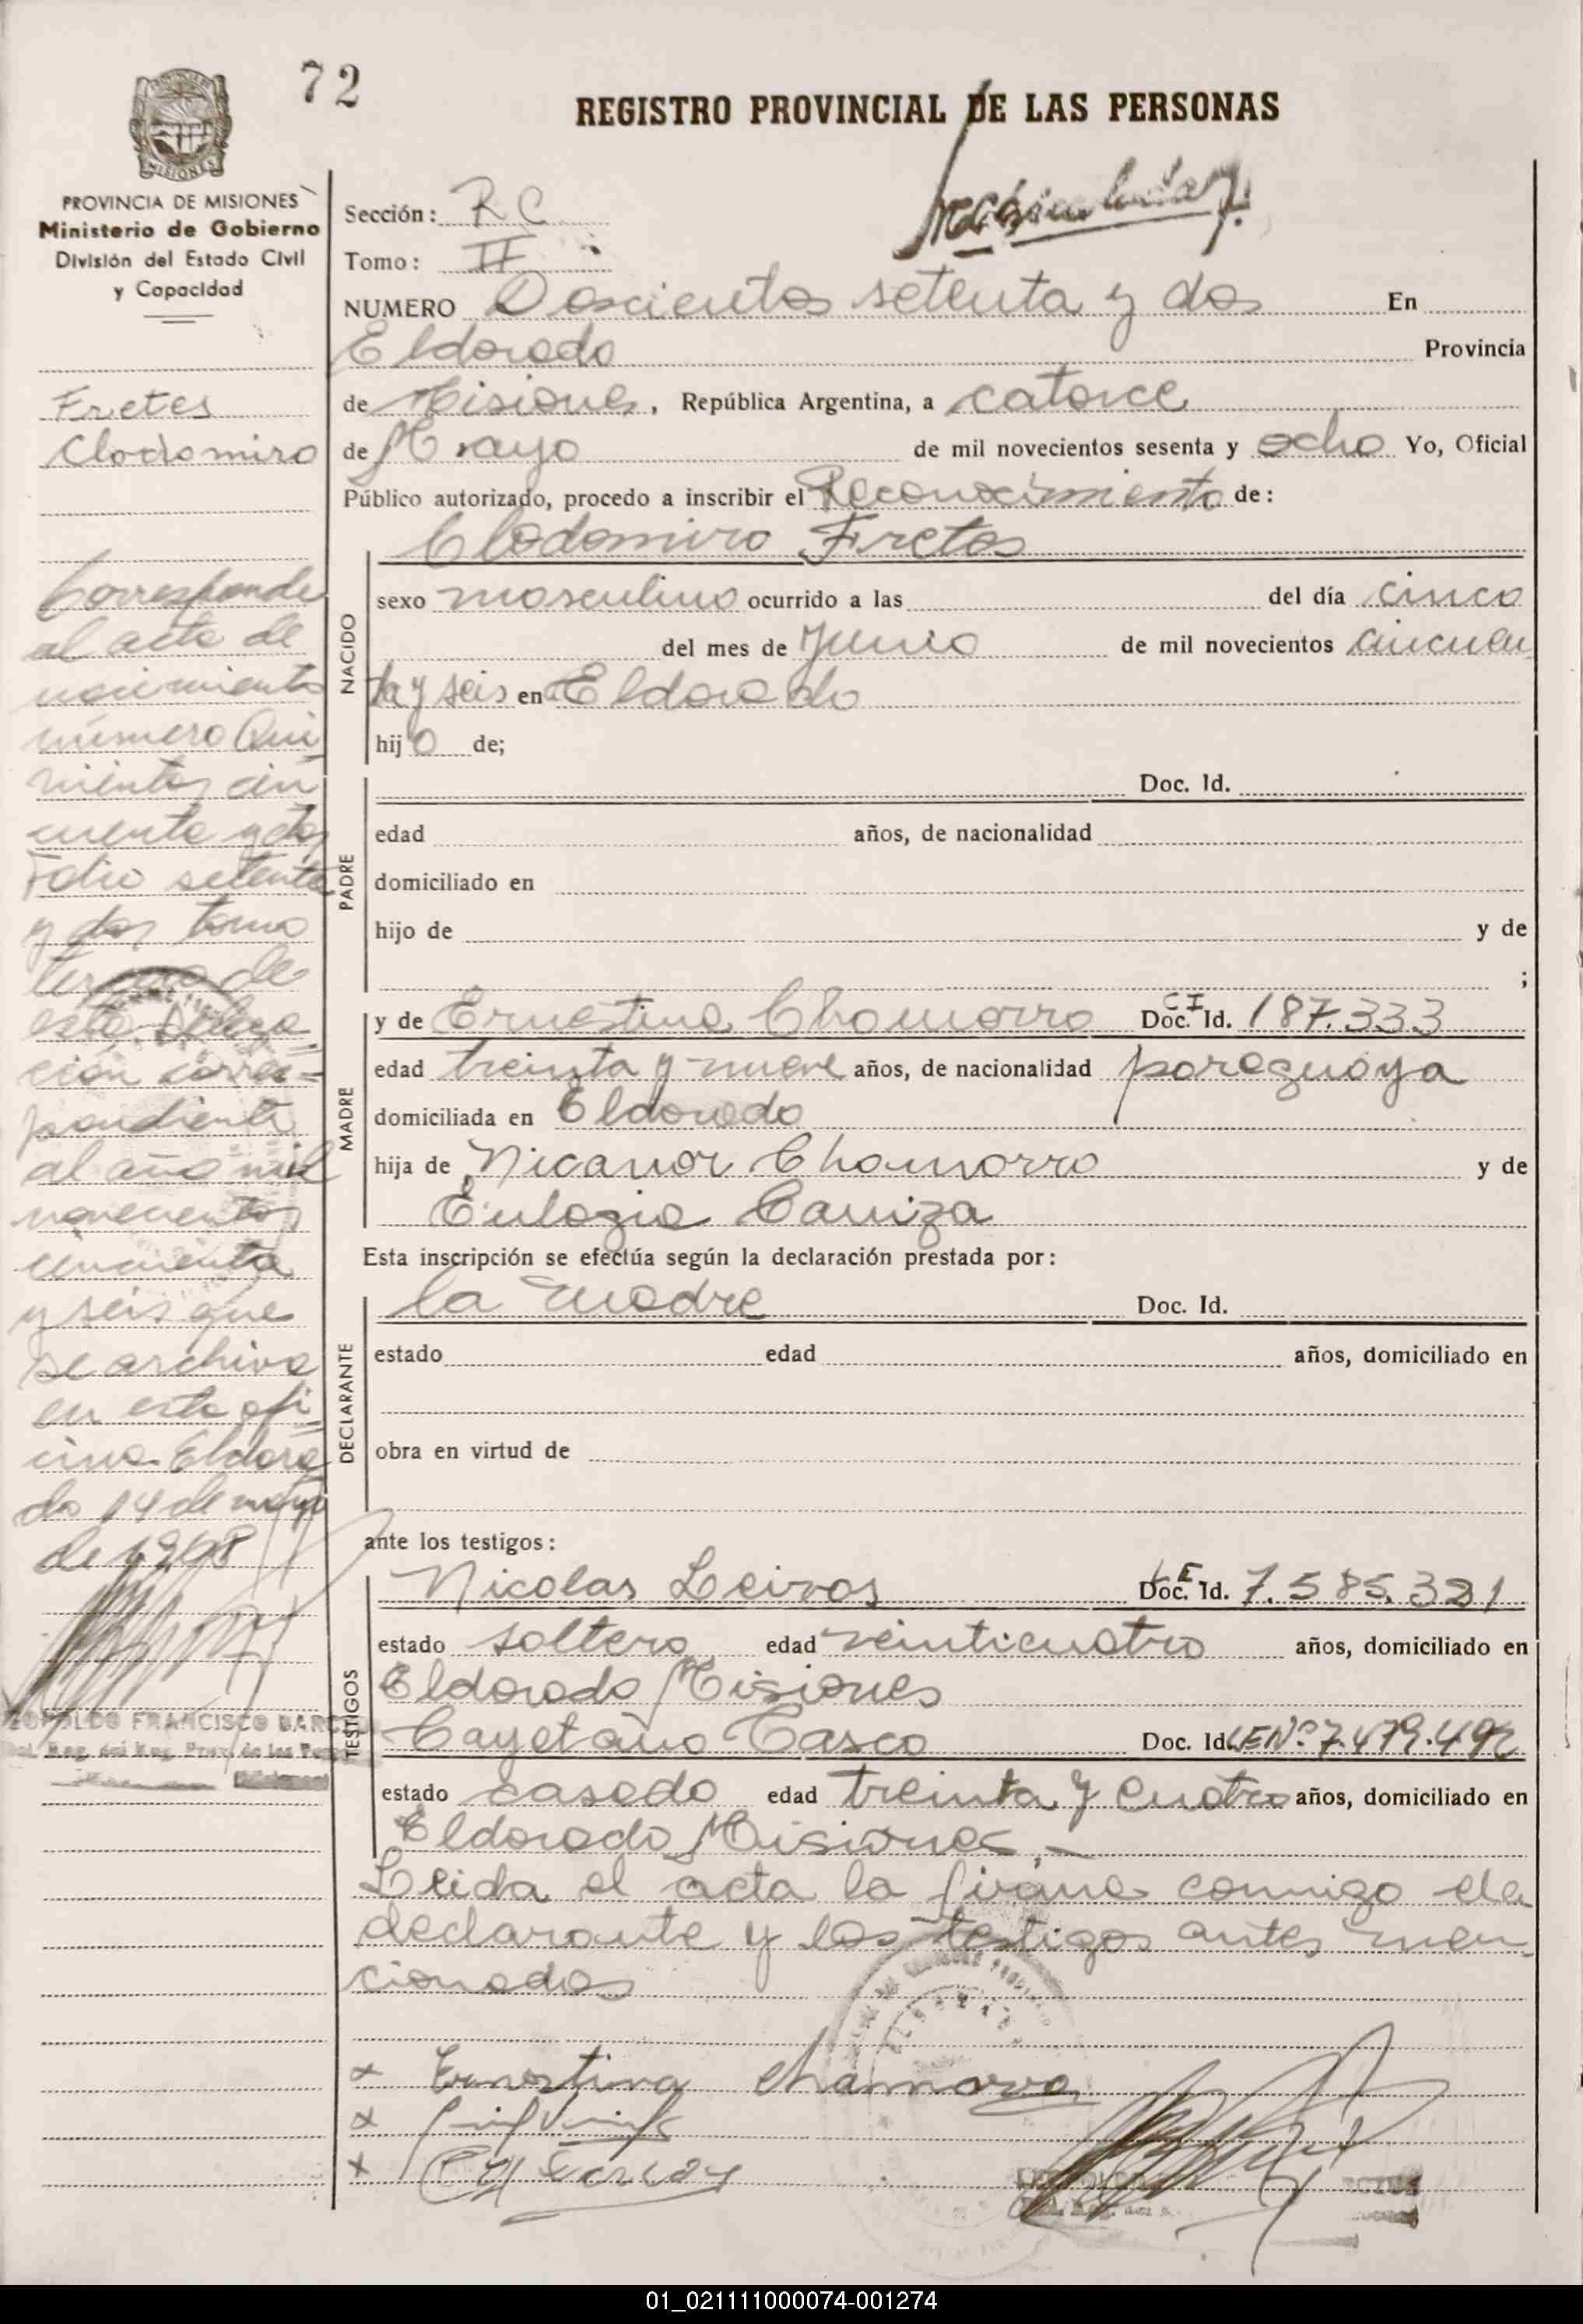 72
REGISTRO PROVINCIAL DE LAS PERSONAS
MISIONES
PROVINCIA DE MISIONES
Ministerio de Gobierno
División del Estado Civil
y Capacidad
Fretes
Clodomiro
Corresponde
al acta de
nacimiento
número Qui
nientos cin
cuenta y dos
Folio setenta
y dos tomo
tercero de
esta Delega
ción corres=
pondiente
al año mil
novecientos
cincuenta
y seis que
se archiva
en esta ofi
cina. Eldora
do 14 de mayo
de 1968
LEOPOLDO FRANCISCO
Sección: R C
Tomo: II
NUMERO Doscientos setenta y dos En
Eldorado Provincia
de Misiones, República Argentina, a catorce
de Mayo de mil novecientos sesenta y ocho Yo, Oficial
Público autorizado, procedo a inscribir el Reconocimiento de:
Clodomiro Fretes
NACIDO
sexo masculino ocurrido a las del día cinco
del mes de Junio de mil novecientos cincuen
ta y seis en Eldorado
hijo de;
PADRE
Doc. Id.
edad años, de nacionalidad
domiciliado en
hijo de y de
;
MADRE
y de Ernestina Chamorro CI Doc. Id. 187.333
edad treinta y nueve años, de nacionalidad paraguaya
domiciliada en Eldorado
hija de Nicanor Chamorro y de
Eulogia Caniza
Esta inscripción se efectúa según la declaración prestada por:
DECLARANTE
la madre Doc. Id.
estado edad años, domiciliado en
obra en virtud de
ante los testigos:
TESTIGOS
Nicolas Leivas LE Doc. Id. 7.585.321
estado soltero edad veinticuatro años, domiciliado en
Eldorado Misiones
Cayetano Tasco Doc. Id. LE Nº 7.479.492
estado casado edad treinta y cuatro años, domiciliado en
Eldorado Misiones.-
Leida el acta la firma conmigo la
declarante y los testigos antes men
cionados
x Ernestina chamorro
x
x
01_021111000074-001274